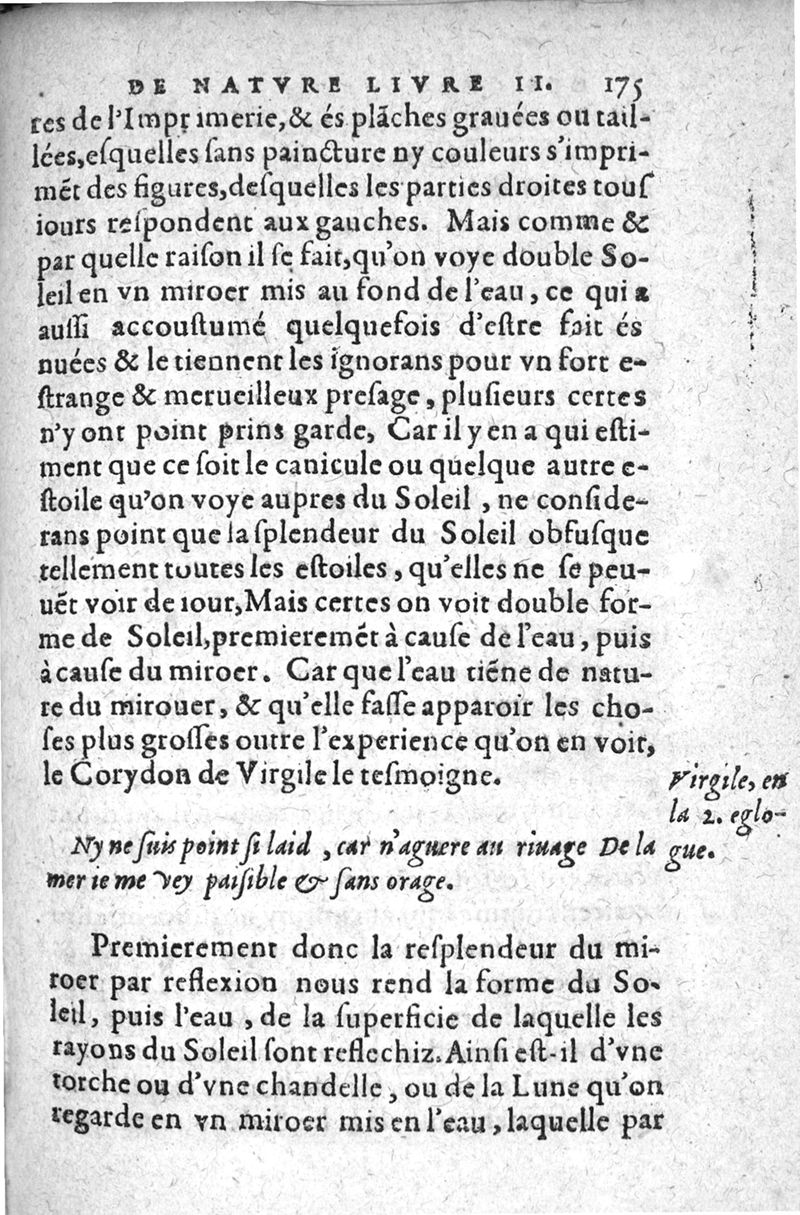 DE NATVRE LIVRE II. 175
res de l'Imprimerie,& és plāches grauées ou tail-
lées,eſquelles ſans paincture ny couleurs s'impri-
mēt des figures,deſquelles les parties droites touſ
iours reſpondent aux gauches. Mais comme &
par quelle raiſon il ſe fait,qu'on voye double So-
leil en vn miroer mis au fond de l'eau, ce qui a
auſſi accouſtumé quelquefois d'eſtre fait és
nuées & le tiennent les ignorans pour vn fort e-
ſtrange & merueilleux preſage, pluſieurs certes
n'y ont point prins garde, Car il y en a qui eſti-
ment que ce ſoit le canicule ou quelque autre e-
ſtoile qu'on voye aupres du Soleil, ne conſide-
rans point que la ſplendeur du Soleil obfuſque
tellement toutes les eſtoiles, qu'elles ne ſe peu-
uēt voir de iour,Mais certes on voit double for-
me de Soleil,premieremēt à cauſe de l'eau, puis
à cauſe du miroer. Car que l'eau tiēne de natu-
re du mirouer, & qu'elle faſſe apparoir les cho-
ſes plus groſſes outre l'experience qu'on en voit,
le Corydon de Virgile le teſmoigne.
Virgile, en
la 2. eglo-
gue.
Ny ne ſuis point ſi laid, car n'aguere au riuage De la
mer ie me vey paiſible & ſans orage.
Premierement donc la reſplendeur du mi-
roer par reflexion nous rend la forme du So-
leil, puis l'eau, de la ſuperficie de laquelle les
rayons du Soleil ſont reflechiz. Ainſi eſt-il d'vne
torche ou d'vne chandelle, ou de la Lune qu'on
regarde en vn miroer mis en l'eau, laquelle par